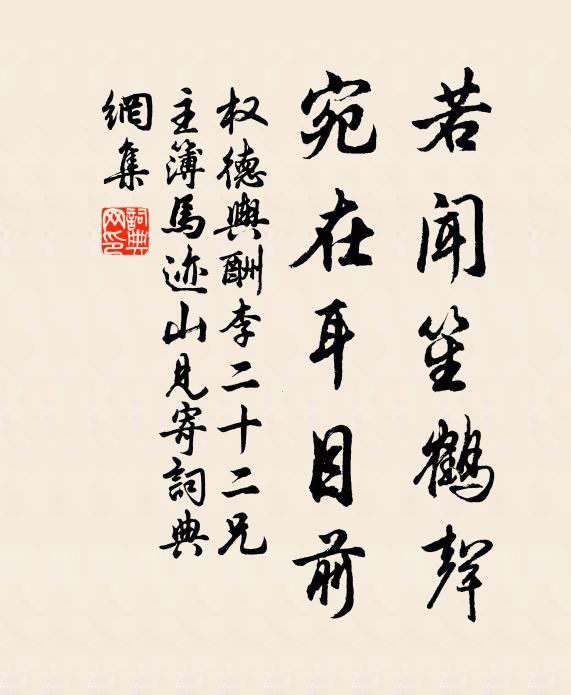 若闻笙鹤聲
宛在耳目前
权德輿酬李二十二兄
主簿馬迹山見寄詞典
網集
詞典
网印